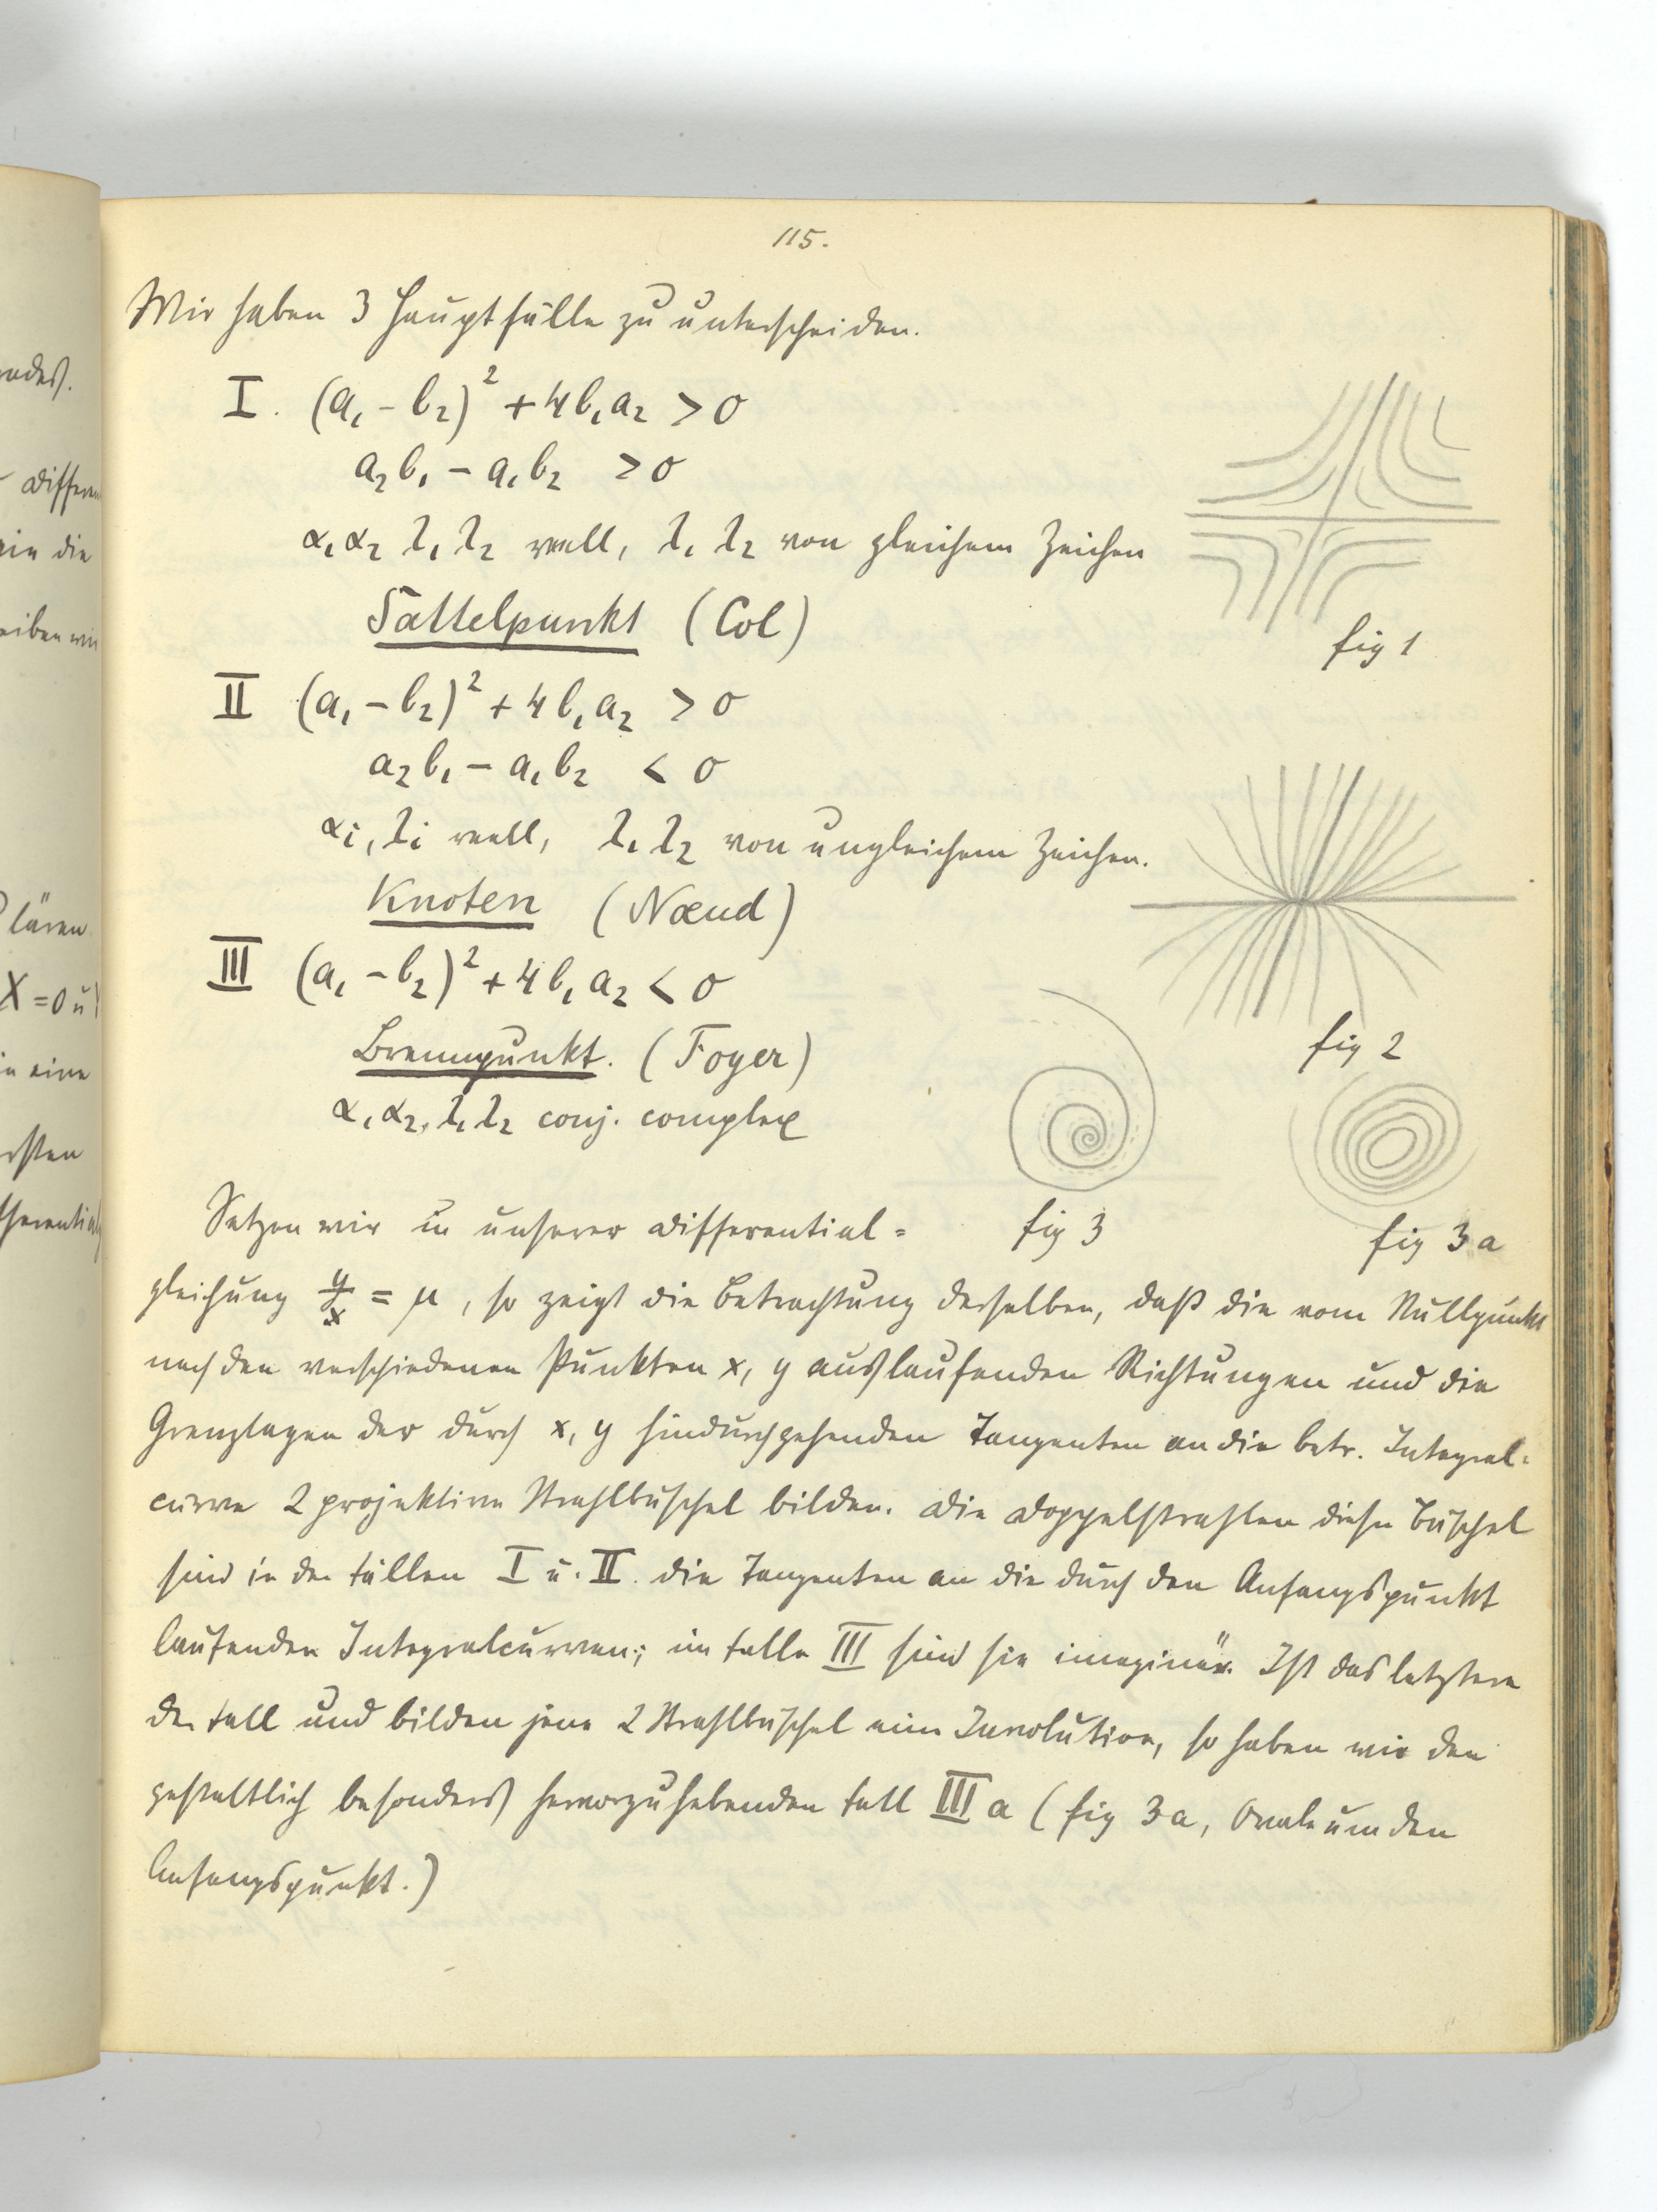 115.
Wir haben 3 Hauptfälle zu unterscheiden.
I. (a₁ - b₂)² + 4b₁a₂ > 0
a₂b₁ - a₁b₂ > 0
α₁ α₂ λ₁ λ₂ reell, λ₁ λ₂ von gleichem Zeichen
Sattelpunkt (Col)
fig 1
II (a₁ - b₂)² + 4b₁a₂ > 0
a₂b₁ - a₁b₂ < 0
αi, λi reell, λ₁ λ₂ von ungleichem Zeichen.
Knoten (Nœud)
fig 2
III (a₁ - b₂)² + 4b₁a₂ < 0
Brennpunkt. (Foyer)
α₁ α₂, λ₁ λ₂ conj. complex
fig 3
fig 3a
Setzen wir in unserer Differential=
gleichung y/x = μ, so zeigt die Betrachtung derselben, daß die vom Nullpunkt
nach den verschiedenen Punkten x, y auslaufenden Richtungen und die
Grenzlagen der durch x, y hindurchgehenden Tangenten an die betr. Integral=
curve 2 projektive Strahlbüschel bilden. Die Doppelstrahlen dieser Büschel
sind in den Fällen I u. II. die Tangenten an die durch den Anfangspunkt
laufenden Integralcurven; im Falle III sind sie imaginär. Ist das letztere
der Fall und bilden jene 2 Strahlbüschel eine Involution, so haben wir den
gestaltlich besonders hervorzuhebenden Fall III a (fig 3a, Ovale um den
Anfangspunkt.)